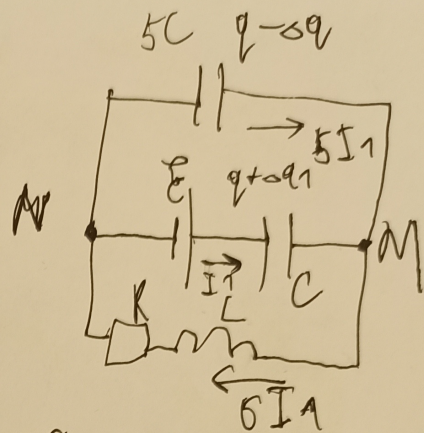 5C q-Δq
5I1
ℰ q+Δq1
N M
I1 L C
K
6I1